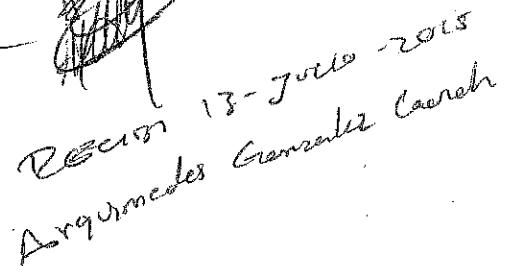 RECIBI 13-Julio-2015
Arquimedes Gonzalez